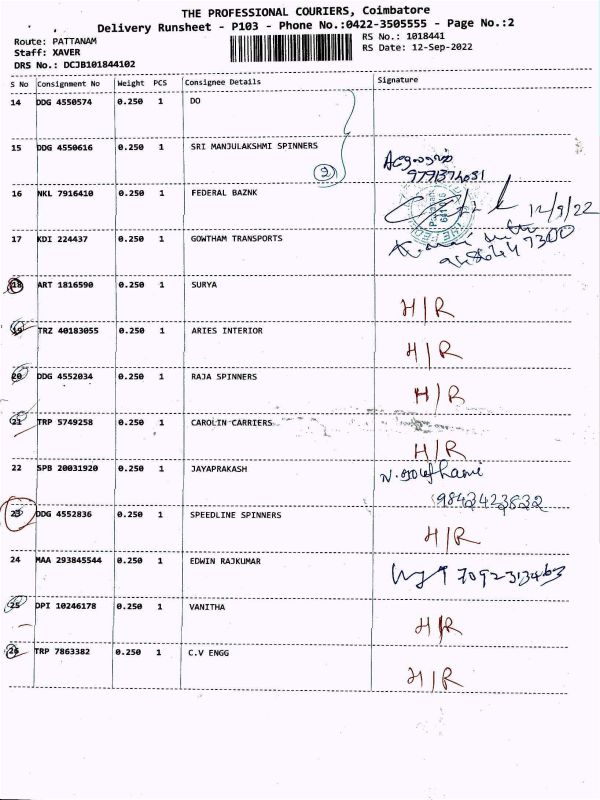 THE PROFESSIONAL COURIERS, Coimbatore
Delivery Runsheet - P103 - Phone No.:0422-3505555 - Page No.:2
Route: PATTANAM
Staff: XAVER
DRS No.: DCJB101844102
RS No.: 1018441
RS Date: 12-Sep-2022
S No Consignment No Weight PCS Consignee Details Signature
14 DDG 4550574 0.250 1 DO
15 DDG 4550616 0.250 1 SRI MANJULAKSHMI SPINNERS
9
16 NKL 7916410 0.250 1 FEDERAL BAZNK 12/9/22
17 KDI 224437 0.250 1 GOWTHAM TRANSPORTS
18 ART 1816590 0.250 1 SURYA H/R
19 TRZ 40183055 0.250 1 ARIES INTERIOR H/R
20 DDG 4552034 0.250 1 RAJA SPINNERS H/R
21 TRP 5749258 0.250 1 CAROLIN CARRIERS H/R
22 SPB 20031920 0.250 1 JAYAPRAKASH
23 DDG 4552836 0.250 1 SPEEDLINE SPINNERS H/R
24 MAA 293845544 0.250 1 EDWIN RAJKUMAR
25 DPI 10246178 0.250 1 VANITHA H/R
26 TRP 7863382 0.250 1 C.V ENGG H/R